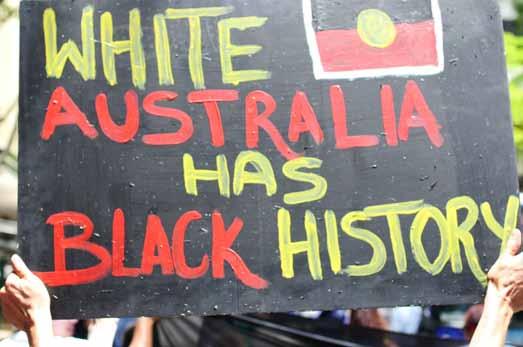 WHITE
AUSTRALIA
HAS
BLACK HISTORY